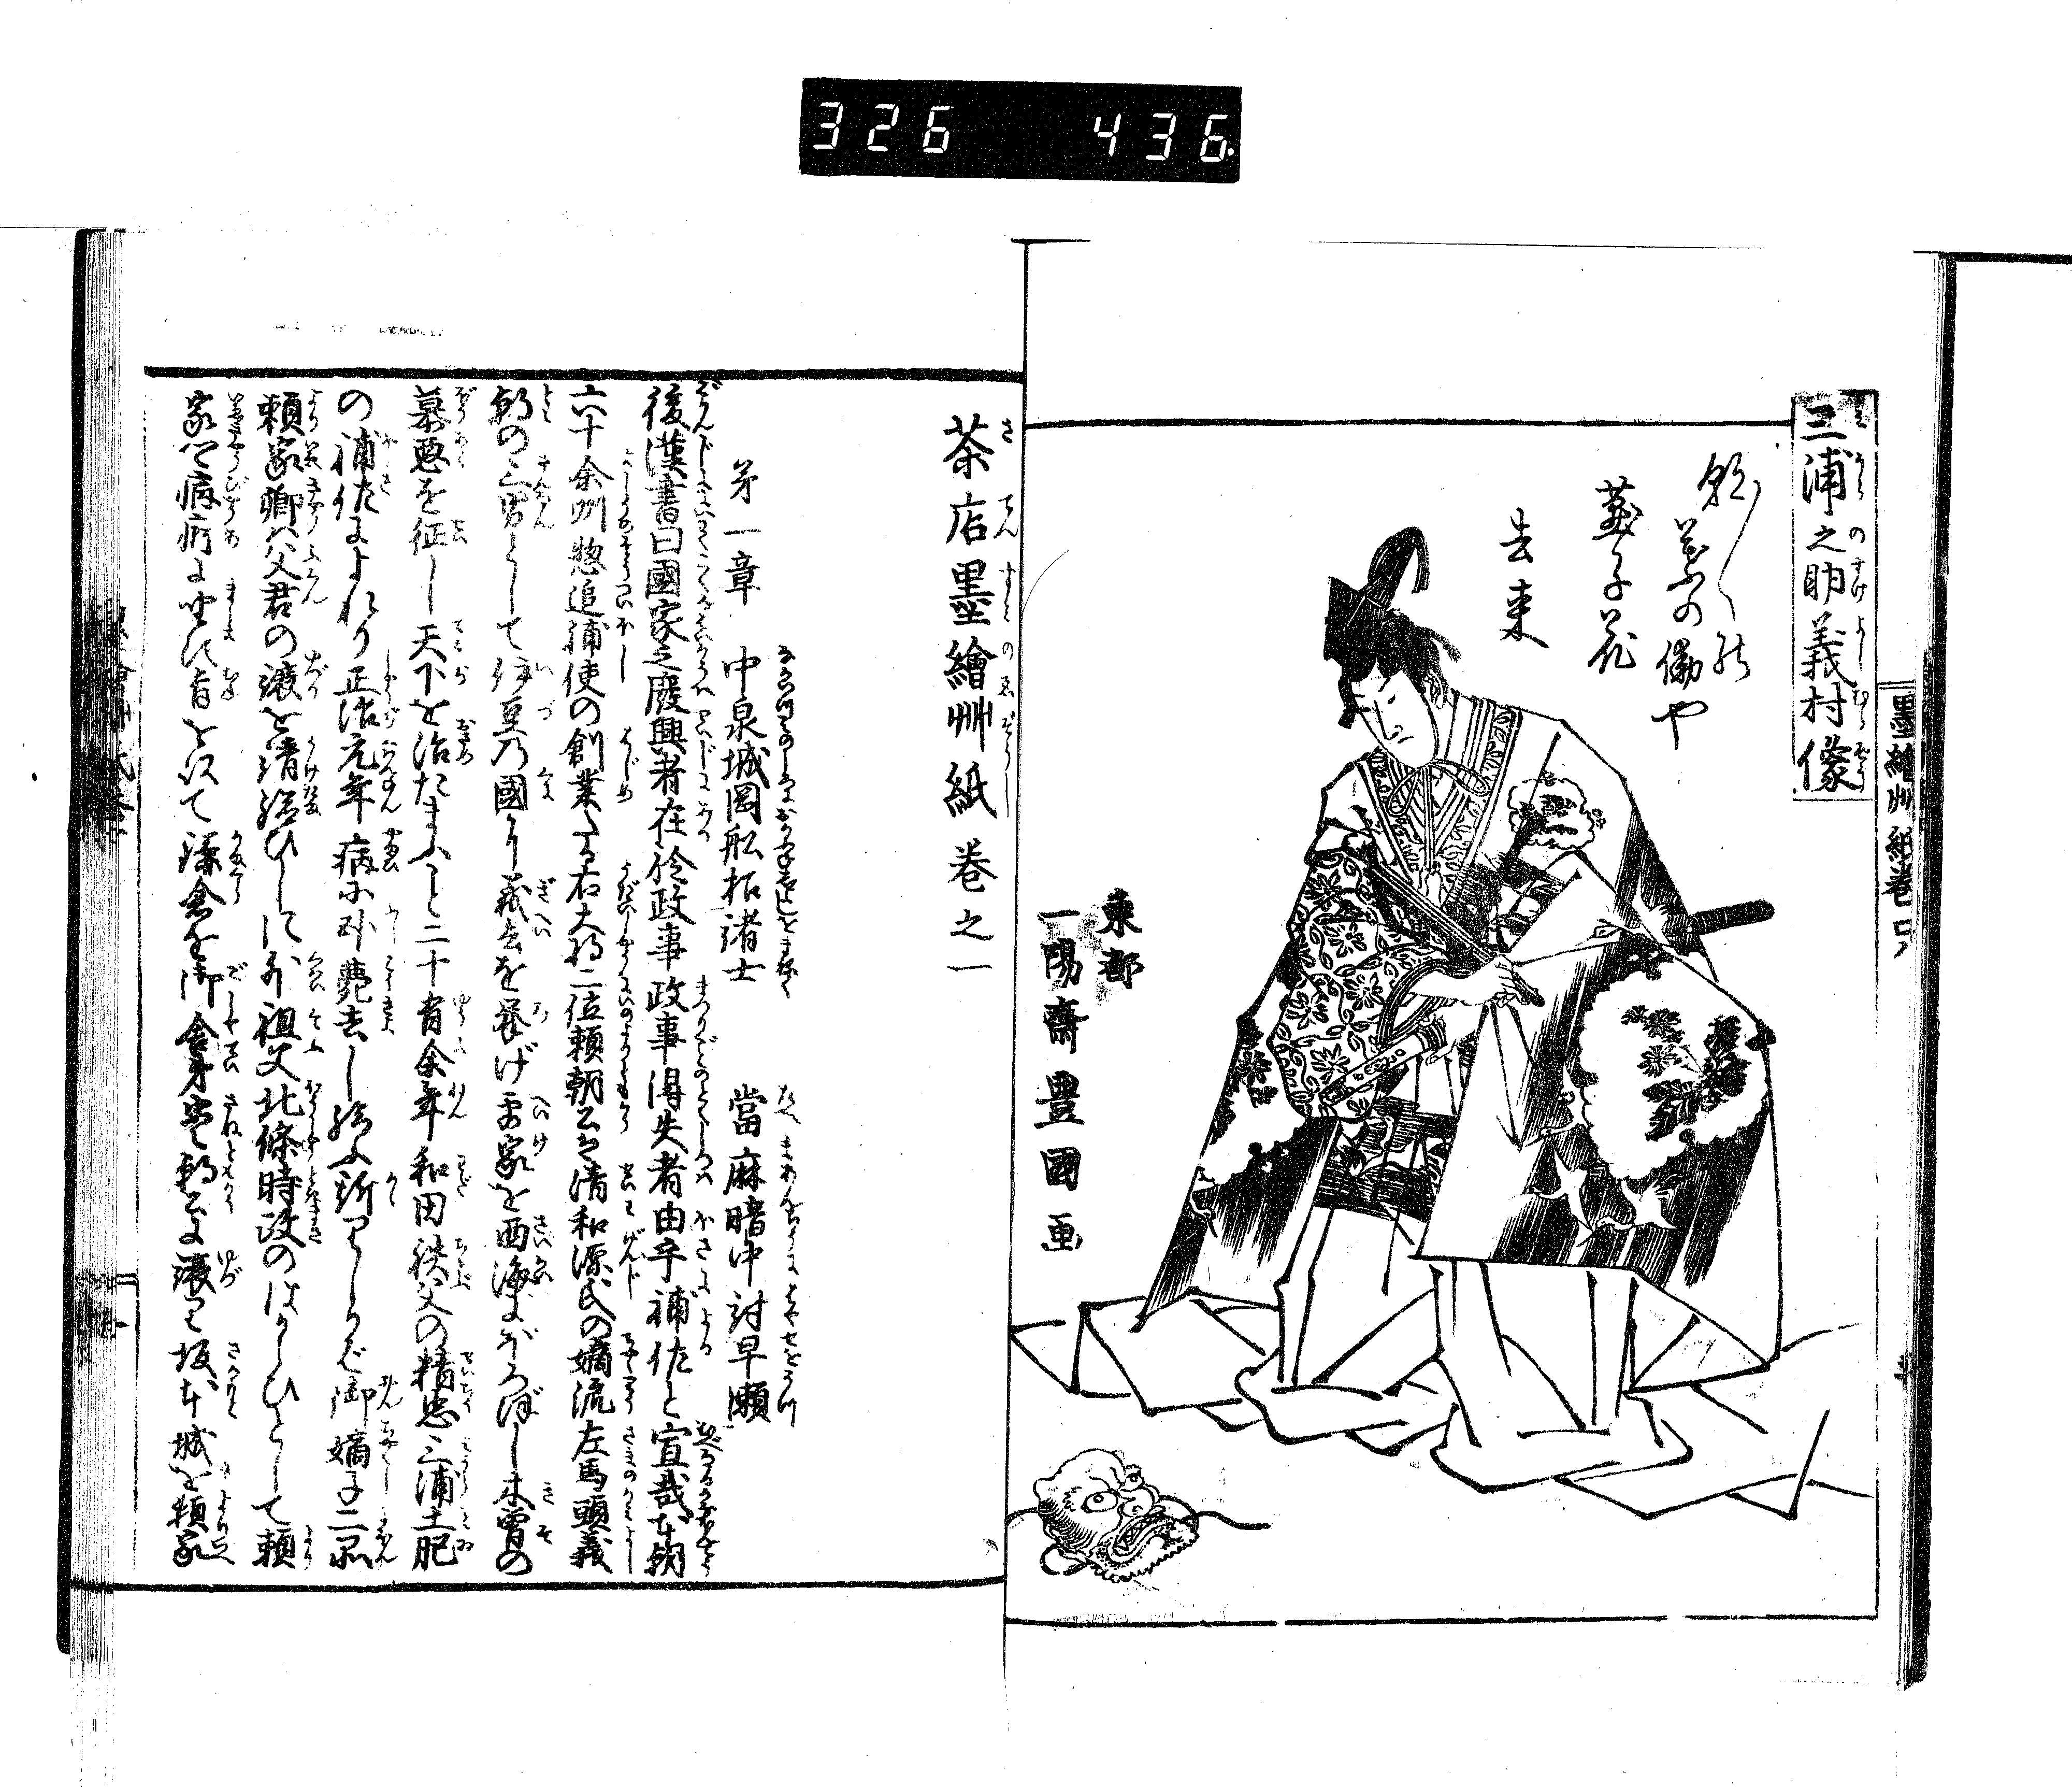 326 436
墨繪艸紙卷
三浦之助義村像
葉の働や
燕子花
去来
東都
一陽齋豊國画
茶店墨繪艸紙巻之一
第一章 中泉城岡船招諸士 當麻暗中討早瀬
後漢書曰國家之廢興者在於政事政事得失者由乎補佐と宣哉本朝
六十余州惣追補使の創業たる右大将二位頼朝公は清和源氏の嫡流左馬頭義
朝の三男として伊豆の國に義兵を挙げ平家を西海にほろぼし木曽の
暴悪を征し天下を治たまふこと二十有余年和田秩父の精忠三浦土肥
の補佐によれり正治元年病に卧薨去し給ふ所
御嫡子二品
頼家卿父君の譲を請給ひしに外祖父北條時政のはからひとして頼
家は病痾に坐す旨を以て鎌倉を御舎弟実朝公に譲り坂本城を頼家